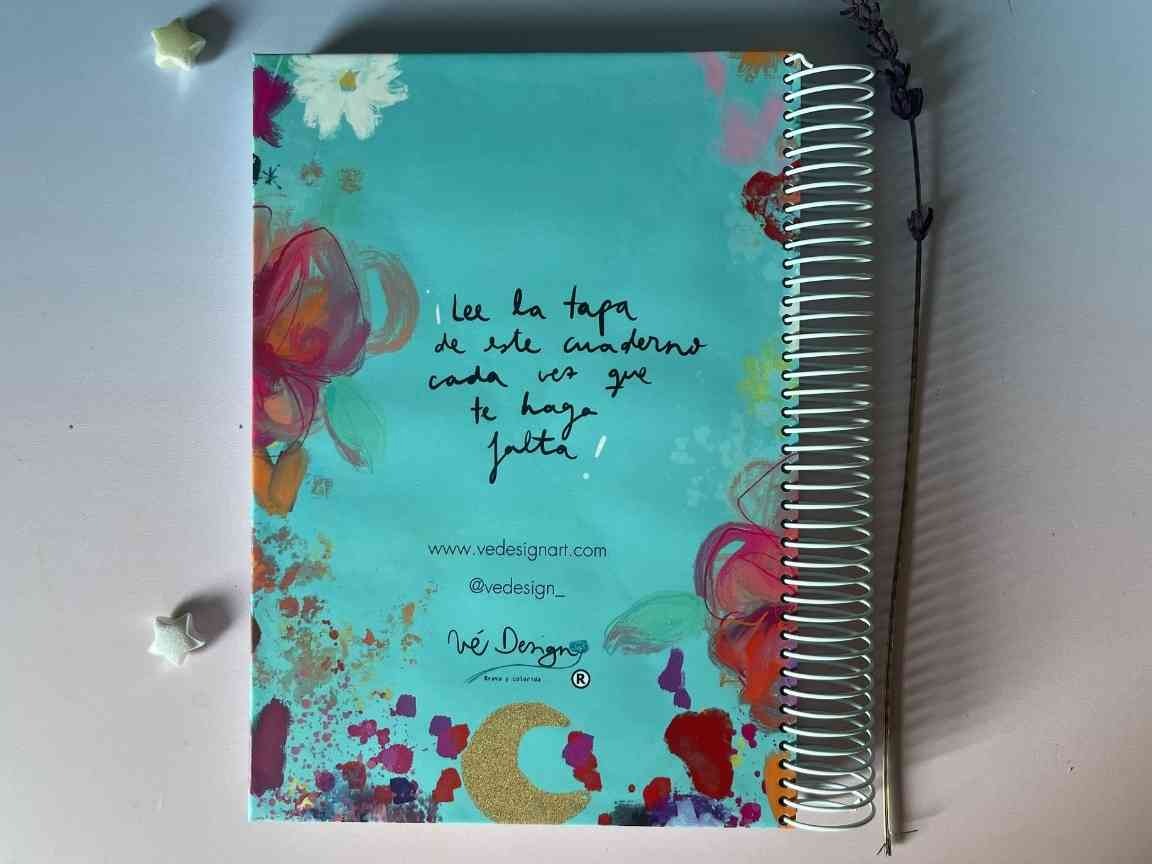 ¡Lee la tapa
de este cuaderno
cada vez que
te haga
falta!
www.vedesignart.com
@vedesign_
Vé Design
Brava y colorida
®